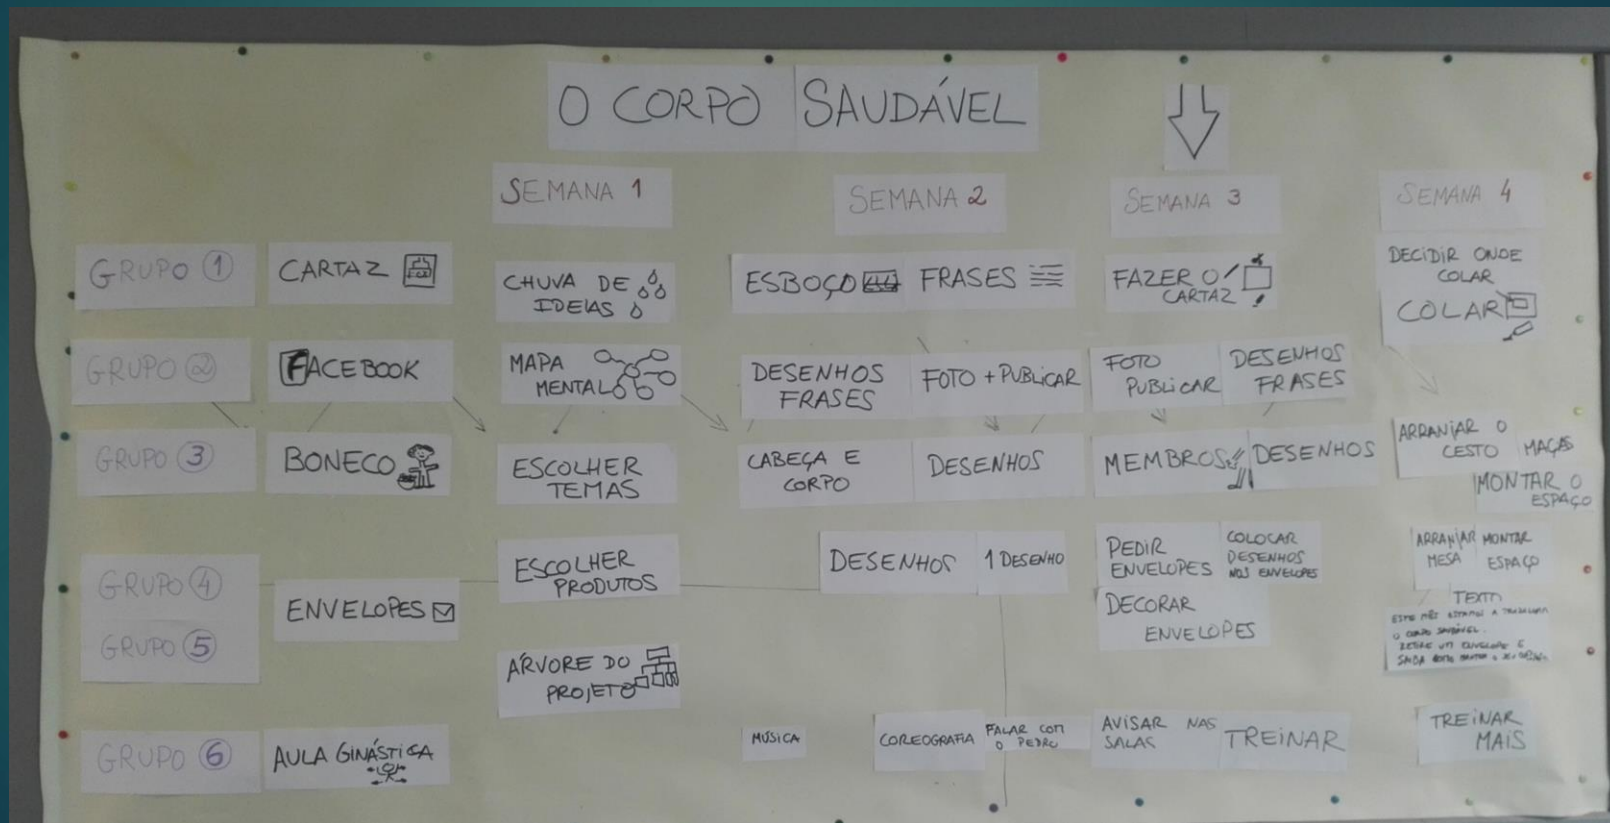 O CORPO SAUDÁVEL
SEMANA 1
SEMANA 2
SEMANA 3
SEMANA 4
GRUPO 1
CARTAZ
CHUVA DE
IDEIAS
ESBOÇO
FRASES
FAZER O
CARTAZ
DECIDIR ONDE
COLAR
COLAR
GRUPO 2
FACEBOOK
MAPA
MENTAL
DESENHOS
FRASES
FOTO + PUBLICAR
FOTO
PUBLICAR
DESENHOS
FRASES
GRUPO 3
BONECO
ESCOLHER
TEMAS
CABEÇA E
CORPO
DESENHOS
MEMBROS
DESENHOS
ARRANJAR O
CESTO
MAÇAS
MONTAR O
ESPAÇO
GRUPO 4
GRUPO 5
ENVELOPES
ESCOLHER
PRODUTOS
ÁRVORE DO
PROJETO
DESENHOS
1 DESENHO
PEDIR
ENVELOPES
COLOCAR
DESENHOS
NOS ENVELOPES
DECORAR
ENVELOPES
ARRANJAR
MESA
MONTAR
ESPAÇO
TEXTO
ESTE MÊS ESTAMOS A TRABALHAR
O CORPO SAUDÁVEL.
RETIRE UM ENVELOPE E
SAIBA COMO
GRUPO 6
AULA GINÁSTICA
MÚSICA
COREOGRAFIA
FALAR COM
O PEDRO
AVISAR NAS
SALAS
TREINAR
TREINAR
MAIS